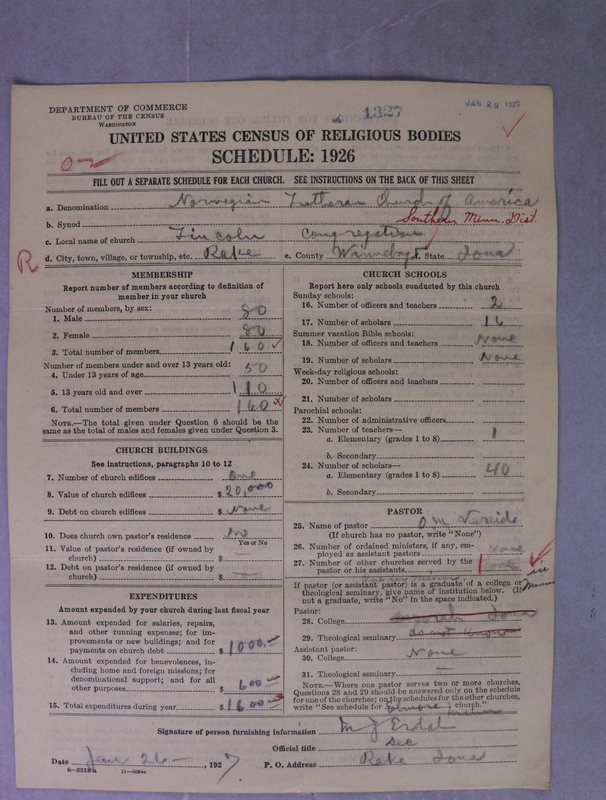 DEPARTMENT OF COMMERCE
BUREAU OF THE CENSUS
WASHINGTON
1327
JAN 29 1927
UNITED STATES CENSUS OF RELIGIOUS BODIES
SCHEDULE: 1926
FILL OUT A SEPARATE SCHEDULE FOR EACH CHURCH. SEE INSTRUCTIONS ON THE BACK OF THIS SHEET
a. Denomination Norwegian Lutheran Church of America
b. Synod Southern Minn. Dist.
c. Local name of church Lincoln Congregation
d. City, town, village, or township, etc. Rake e. County Winnebago f. State Iowa
R
MEMBERSHIP
Report number of members according to definition of member in your church
Number of members, by sex:
1. Male 80
2. Female 80
3. Total number of members 160
Number of members under and over 13 years old:
4. Under 13 years of age 50
5. 13 years old and over 110
6. Total number of members 160
NOTE.—The total given under Question 6 should be the same as the total of males and females given under Question 3.
CHURCH BUILDINGS
See instructions, paragraphs 10 to 12
7. Number of church edifices One
8. Value of church edifices $ 20,000
9. Debt on church edifices $ None
10. Does church own pastor's residence? No
Yes or No
11. Value of pastor's residence (if owned by church) $ —
12. Debt on pastor's residence (if owned by church) $ —
EXPENDITURES
Amount expended by your church during last fiscal year
13. Amount expended for salaries, repairs, and other running expenses; for improvements or new buildings; and for payments on church debt $ 1000.—
14. Amount expended for benevolences, including home and foreign missions; for denominational support; and for all other purposes $ 600—
15. Total expenditures during year $ 1600—
CHURCH SCHOOLS
Report here only schools conducted by this church
Sunday schools:
16. Number of officers and teachers 2
17. Number of scholars 16
Summer vacation Bible schools:
18. Number of officers and teachers None
19. Number of scholars None
Week-day religious schools:
20. Number of officers and teachers
21. Number of scholars
Parochial schools:
22. Number of administrative officers
23. Number of teachers—
a. Elementary (grades 1 to 8) 1
b. Secondary
24. Number of scholars—
a. Elementary (grades 1 to 8) 40
b. Secondary
PASTOR
25. Name of pastor O M
(If church has no pastor, write "None")
26. Number of ordained ministers, if any, employed as assistant pastors None
27. Number of other churches served by the pastor or his assistants
If pastor (or assistant pastor) is a graduate of a college or theological seminary, give name of institution below. (If not a graduate, write "No" in the space indicated.)
Pastor:
28. College
29. Theological seminary do not know
Assistant pastor:
30. College None
31. Theological seminary —
NOTE.—Where one pastor serves two or more churches, Questions 28 and 29 should be answered only on the schedule for one of the churches; on the schedules for the other churches, write "See schedule for Elmore Minn church."
Signature of person furnishing information M J Erdal
Official title Sec
Date Jan 26—, 1927 P. O. Address Rake Iowa
8—5318a 11—5064